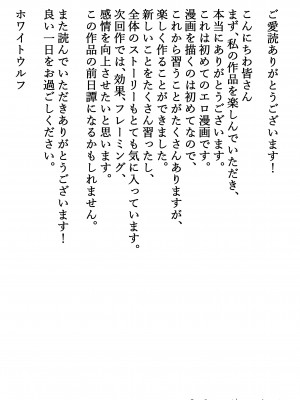 ご愛読ありがとうございます！
こんにちわ皆さん
まず、私の作品を楽しんでいただき、
本当にありがとうございます。
これは初めてのエロ漫画です。
漫画を描くのは初めてなので、
これから習うことがたくさんありますが、
楽しく作ることができました。
新しいことをたくさん習ったし、
全体のストーリーもとても気に入っています。
次回作では、効果、フレーミング、
感情を向上させたいと思います。
この作品の前日譚になるかもしれません。
また読んでいただきありがとうございます！
良い一日をお過ごしください。
ホワイトウルフ